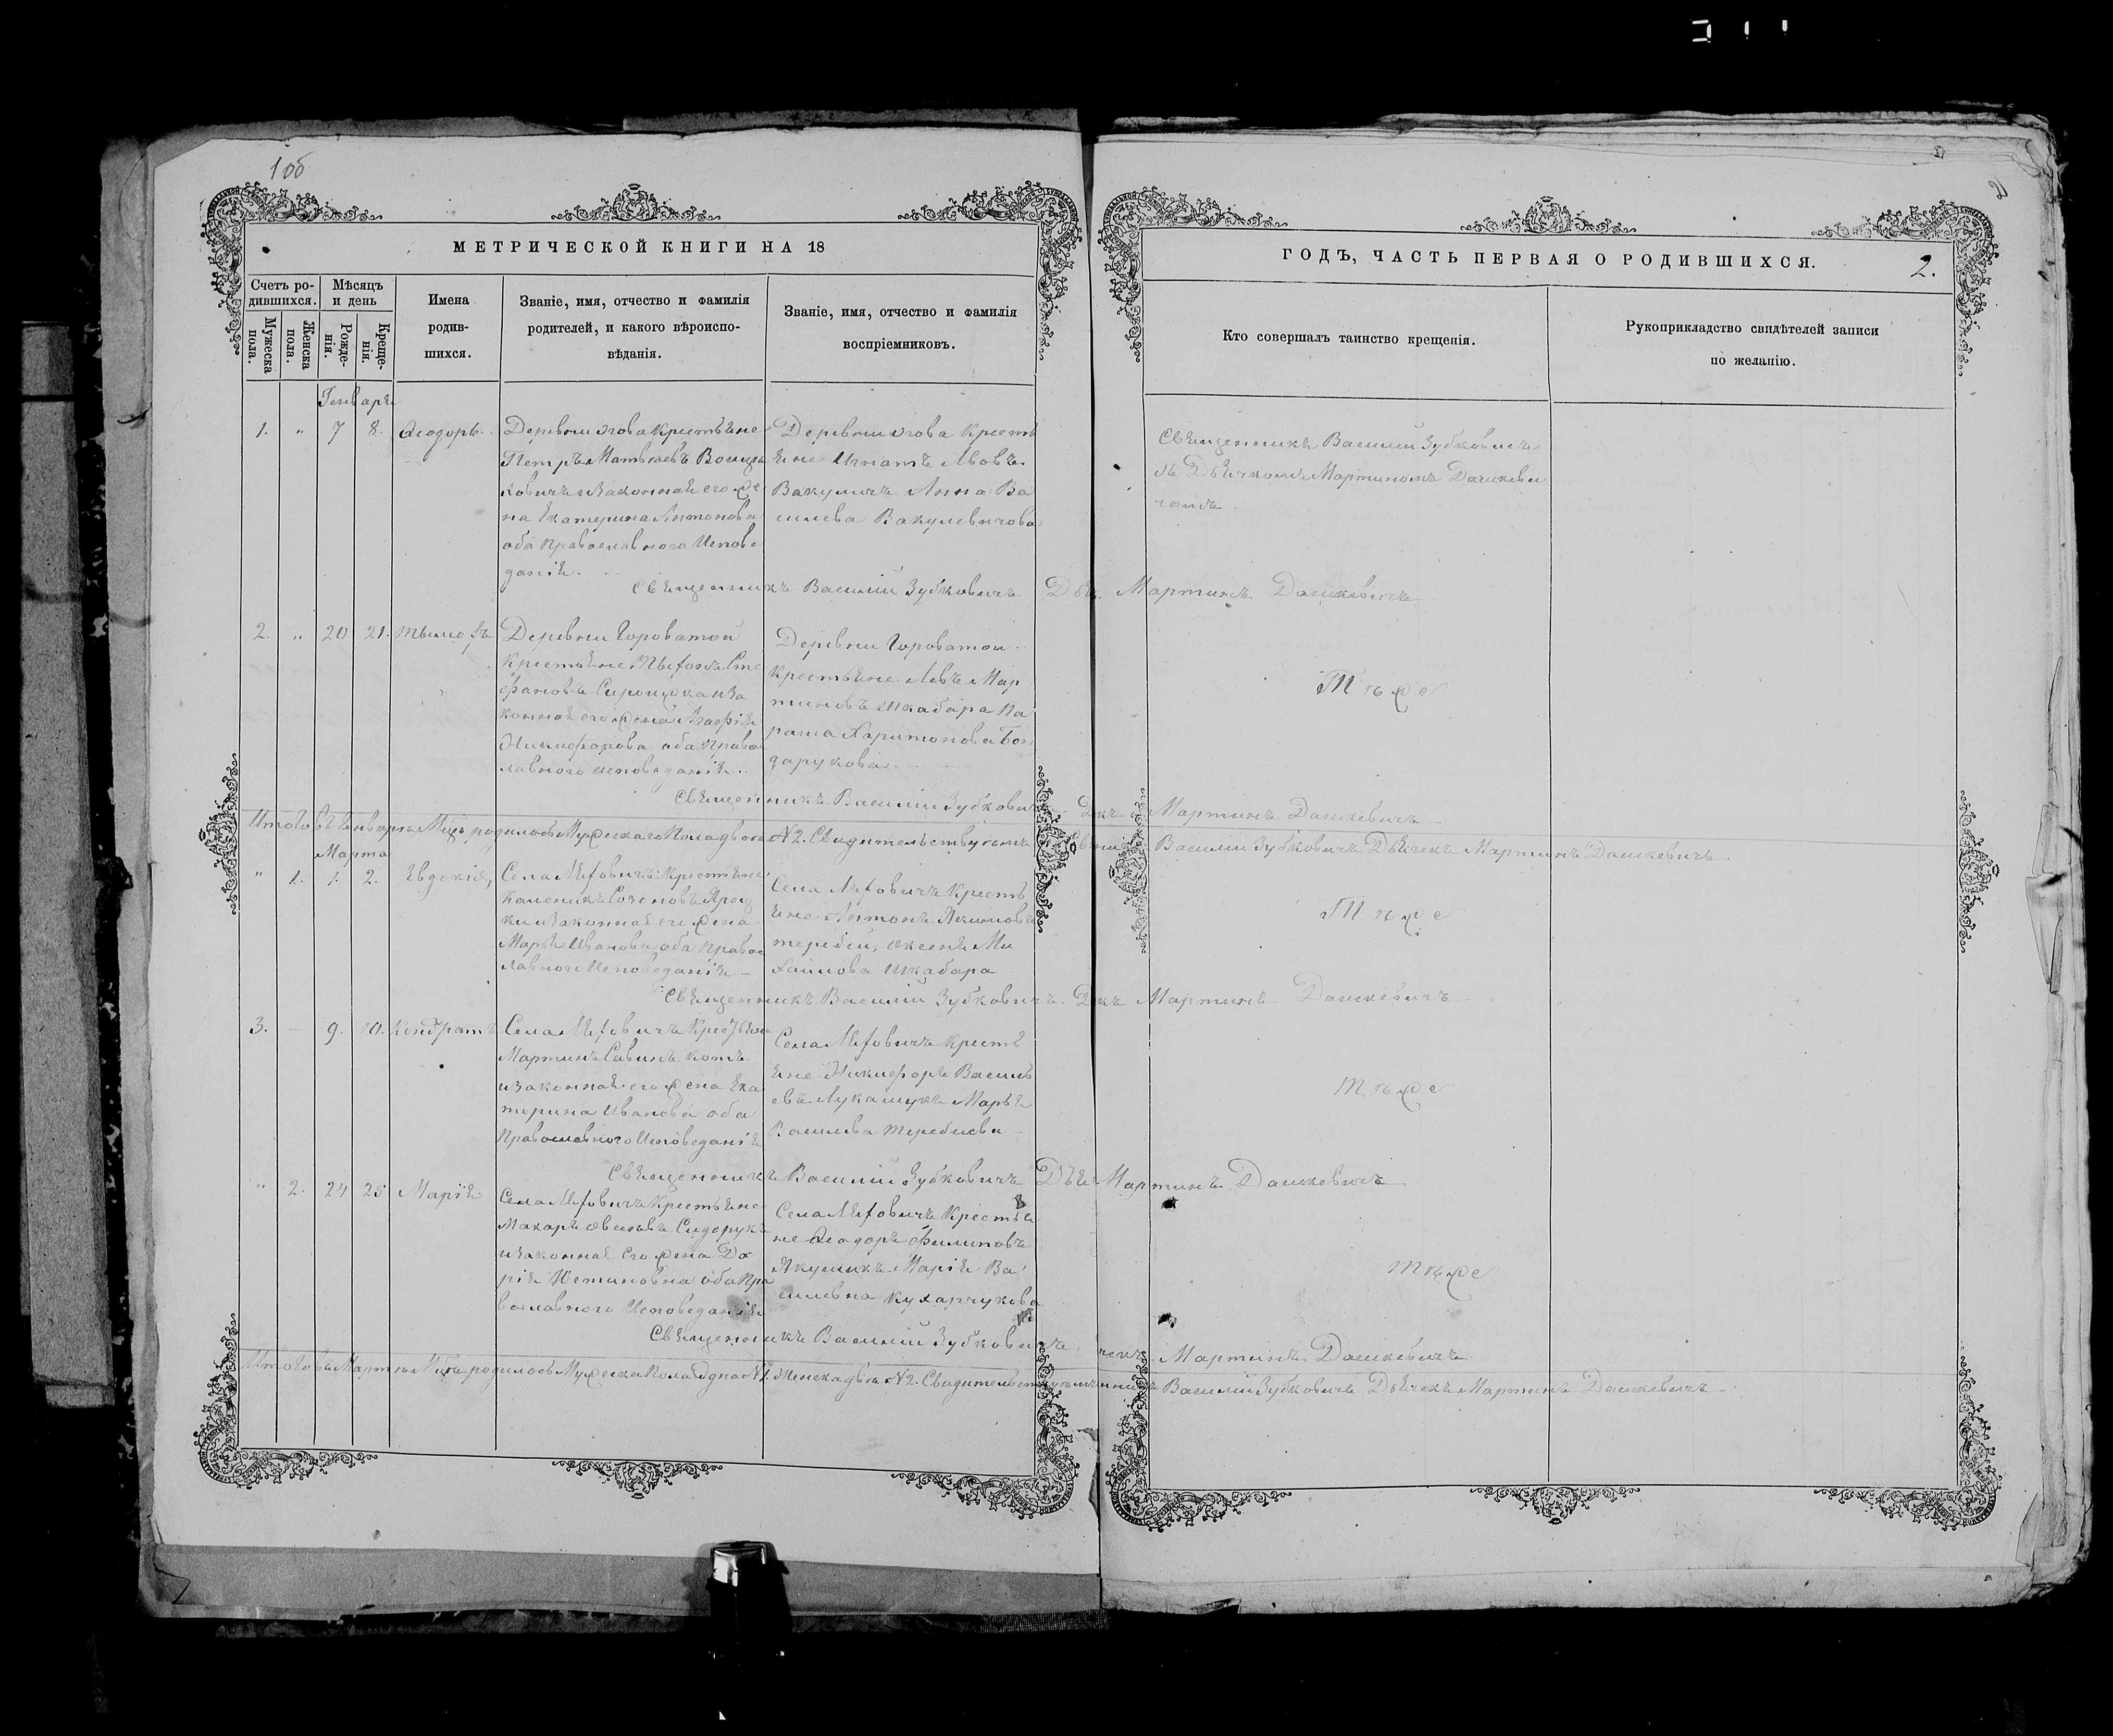 1 об
2
МЕТРИЧЕСКОЙ КНИГИ НА 18
ГОДЪ, ЧАСТЬ ПЕРВАЯ О РОДИВШИХСЯ.
2.
Счетъ ро-
дившихся.
Мужеска
пола.
Женска
пола.
Мѣсяцъ
и день
Рожде-
нія.
Креще-
нія.
Имена
родив-
шихся.
Званіе, имя, отчество и фамилія
родителей, и какого вѣроиспо-
вѣданія.
Званіе, имя, отчество и фамилія
воспріемниковъ.
Кто совершалъ таинство крещенія.
Рукоприкладство свидѣтелей записи
по желанію.
Генваря
1. " 7 8. Ѳеодоръ
Деревни Огова крестьяне
Петръ Матвѣевъ
и законная его же
на Екатерина Антонова
оба православного Испове
данія.
Деревни Огова кресть
яне Игнатъ Львовъ
Вакуличъ Анна Ва
силева Вакулевичова
Священникъ Василий Зубкович
съ Дьячкомъ Мартиномъ Дашкеви
чомъ
Священникъ Василій Зубковичъ Мартинъ Дашкевичъ
2. " 20 21.
Деревни Гороватой
крестьяне Сте
фановъ и за
конная его жена Агафія
Никифорова оба право
лавного исповеданія.
Деревни Гороватой
крестьяне Левъ Мар
тиновъ Шкабара Па
раша Харитонова Бон
дарукова
Тъже
Священникъ Василій Зубкович Дкъ Мартинъ Дашкевичъ
Итого въ Генваръ Мцъ родилось Мужескаго Пола двое №2. Свидительствуютъ Василий Зубковичъ Дьячекъ Мартинъ Дашкевичъ
Марта
" 1. 1. 2. Евдокія,
Села Ляховичъ Крестьяне
и законная его жена
Марья Иванова оба Правос
лавного Исповеданія
Села Ляховичъ Кресть
яне Антонъ Якимовъ
теребей, Ми
хаилова Шкабара
Тъже
Священникъ Василій Зубковичъ Дкъ Мартинъ Дашкевичъ
3. 9. 10. Кондратъ
Села Ляховичъ
Мартинъ Савинъ котъ
и законная его жена Ека
терина Иванова оба
Православного Исповеданія
Села Ляховичъ кресть
яне Никифоръ Василь
евъ Лукашукъ Марья
Василева Теребиева
Тъже
Священникъ Василій Зубковичъ Мартинъ Дашкевичъ
" 2. 24 25 Марія
Села Ляховичъ Крестьяне
Макаръ Сидорукъ
и законная его жена Да
рія Устиновна оба Пра
вославного Исповеданія
Села Ляховичъ Крестья
не Ѳеодоръ Филиповъ
Марія Ва
силевна Кухарчукова
Тъже
Священникъ Василій Зубковичъ Мартинъ Дашкевичъ
Итого въ Марте Мцъ родилось Мужеска Пола Одна №1. Женска двъ №2. Василий Зубковичъ Дьячекъ Мартинъ Дашкевичъ